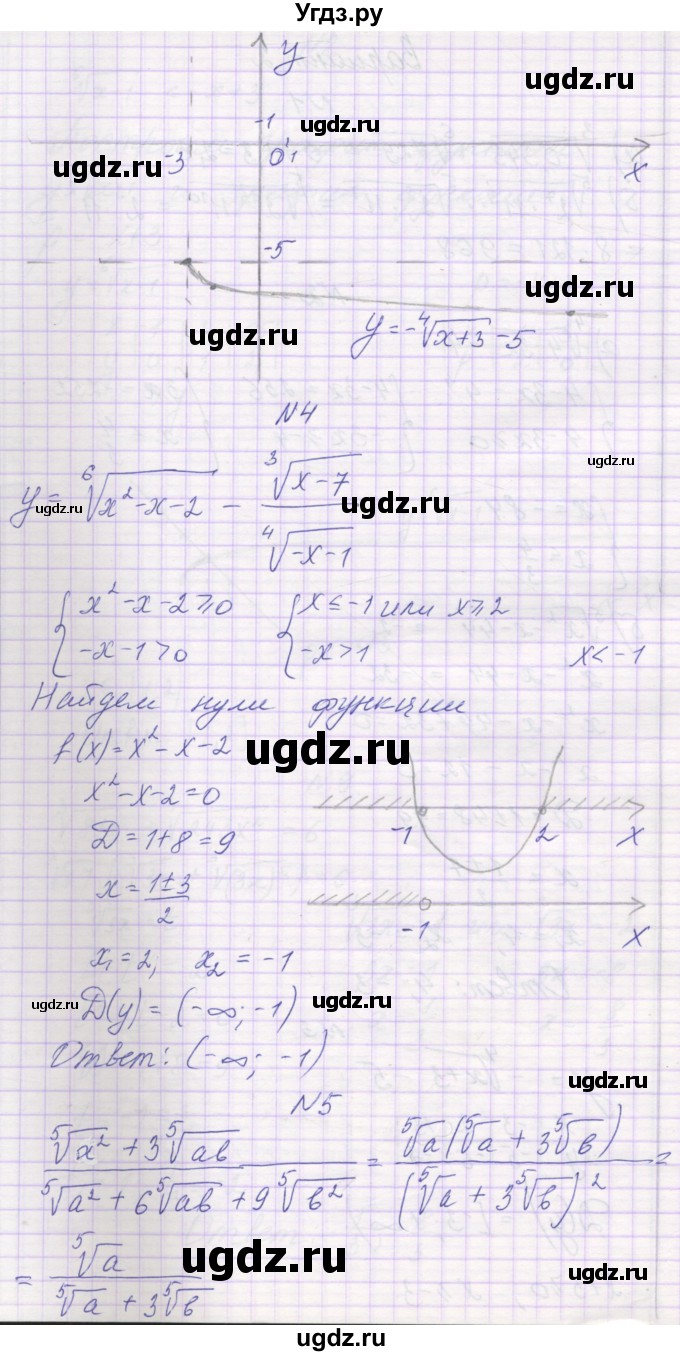 Угдз.ру
y
ugdz.ru
-1
ugdz.ru
ugdz.ru
-3 0 1 x
-5
ugdz.ru
ugdz.ru
y = -⁴√(x+3) - 5
N4
ugdz.ru
y = ⁶√(x² - x - 2) - ³√(x - 7) / ⁴√(-x - 1)
ugdz.ru
ugdz.ru
ugdz.ru
{ x² - x - 2 ≥ 0 { x ≤ -1 или x ≥ 2
{ -x - 1 > 0 { -x > 1 x < -1
Найдем нули функции
f(x) = x² - x - 2
ugdz.ru
x² - x - 2 = 0
D = 1 + 8 = 9
-1 2 x
x = (1 ± 3) / 2
-1 x
x₁ = 2; x₂ = -1
ugdz.ru
D(y) = (-∞; -1)
ugdz.ru
Ответ: (-∞; -1)
ugdz.ru
N5
(⁵√x² + 3⁵√ab) / (⁵√a² + 6⁵√ab + 9⁵√b²) = ⁵√a(⁵√a + 3⁵√b) / (⁵√a + 3⁵√b)² =
ugdz.ru
= ⁵√a / (⁵√a + 3⁵√b)
ugdz.ru
ugdz.ru
ugdz.ru